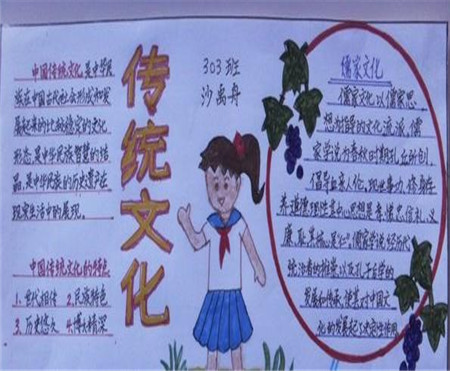 中国传统文化,是中华民
族在中国古代社会形成和发
展起来的比较稳定的文化
形态,是中华民族智慧的结
晶,是中华民族的历史遗产在
现实生活中的展现。
中国传统文化的特色
1.世代相传 2.民族特色
3.历史悠久 4.博大精深
传统文化
303班
沙禹舟
儒家文化
儒家文化以儒家思
想为指导的文化流派,儒
家学说为春秋时期孔丘所创,
倡导血亲人伦、现世事功、修身存
养、道德理性,其中心思想是孝、悌、忠、信、礼、义、
廉、耻,其核心是"仁"。儒家学说经历代
统治者的推崇,以及孔子后学的
发展和传承,使其对中国文
化的发展起了决定性作用